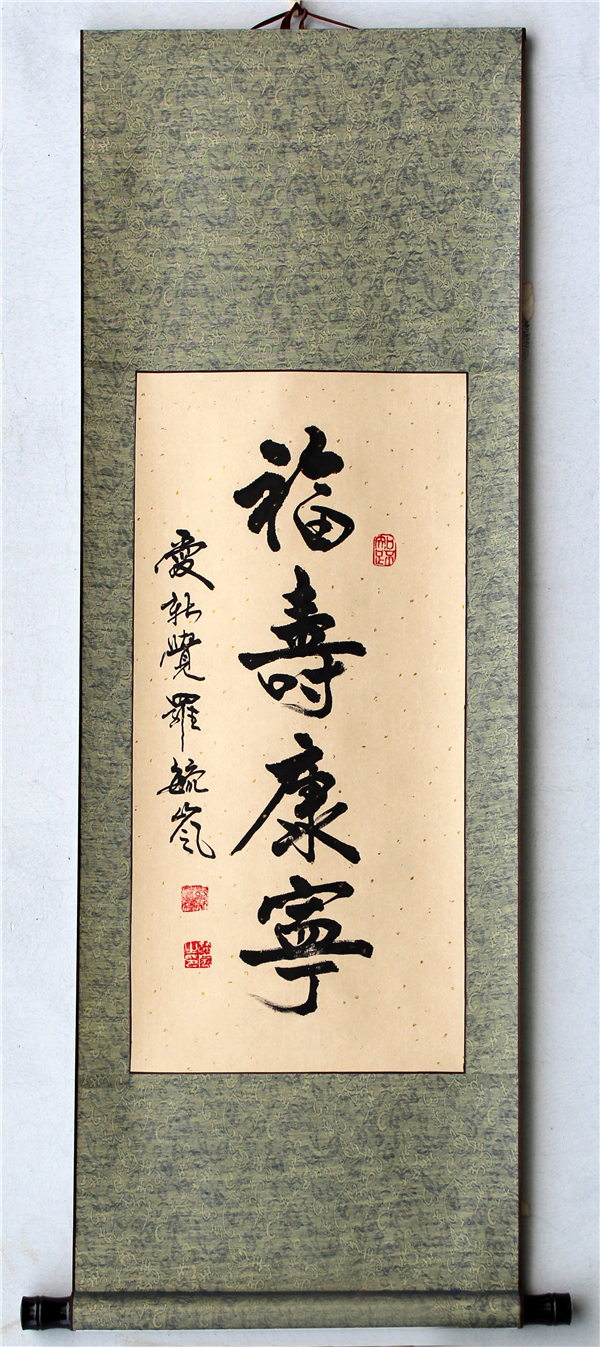 福壽康寧
愛新覺羅毓嵐